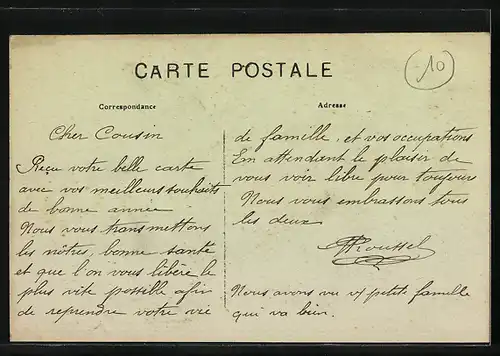 10
CARTE POSTALE
Correspondance
Adresse
Cher Cousin
Reçu votre belle carte
avec vos meilleurs souhaits
de bonne année
Nous vous transmettons
les nôtres, bonne santé
et que l'on vous libère le
plus vite possible afin
de reprendre votre vie
de famille, et vos occupations
En attendant le plaisir de
vous voir libre pour toujours
Nous vous embrassons tous
les deux
Roussel
Nous avons vu v/ petite famille
qui va bien.